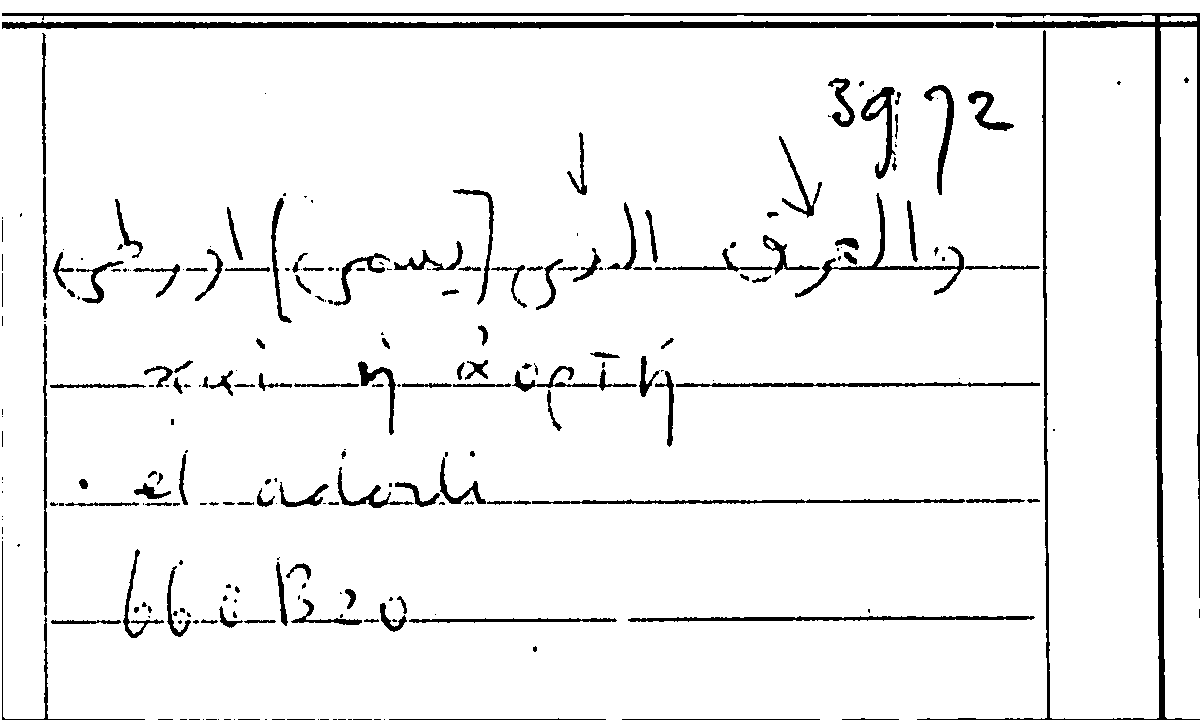 39 72
والعرق الذى [يسمى] اورطى
καὶ ἡ ἀορτή
. el adorti
668 B 20